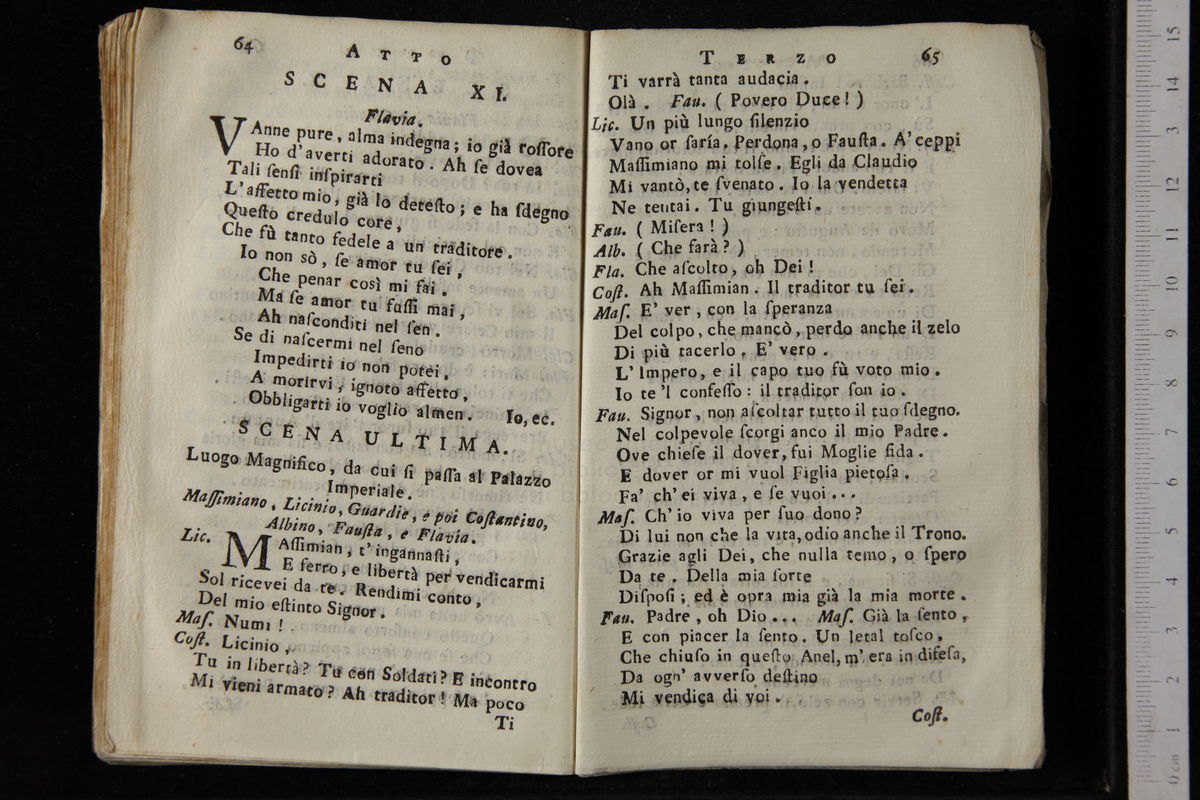 64
ATTO
SCENA XI.
Flavia.
VAnne pure, alma indegna; io già rossore
Ho d'averti adorato. Ah se dovea
Tali ſenſi inſpirarti
L'affetto mio, già lo deteſto; e ha ſdegno
Queſto credulo core,
Che fù tanto fedele a un traditore.
Io non sò, ſe amor tu ſei,
Che penar così mi fai.
Ma ſe amor tu fuſſi mai,
Ah naſconditi nel ſen.
Se di naſcermi nel ſeno
Impedirti io non potei,
A morirvi, ignoto affetto,
Obbligarti io voglio almen. Io, ec.
SCENA ULTIMA.
Luogo Magnifico, da cui ſi paſſa al Palazzo
Imperiale.
Maſſimiano, Licinio, Guardie, e poi Coſtantino,
Albino, Fauſta, e Flavia.
Lic. MAſſimian, t'ingannaſti,
E ferro, e libertà per vendicarmi
Sol ricevei da te. Rendimi conto,
Del mio eſtinto Signor.
Maſ. Numi!
Coſt. Licinio,
Tu in libertà? Tu con Soldati? E incontro
Mi vieni armato? Ah traditor! Ma poco
Ti
TERZO
65
Ti varrà tanta audacia.
Olà. Fau. (Povero Duce!)
Lic. Un più lungo ſilenzio
Vano or ſaría. Perdona, o Fauſta. A' ceppi
Maſſimiano mi tolſe. Egli da Claudio
Mi vantò, te ſvenato. Io la vendetta
Ne tentai. Tu giungeſti.
Fau. (Miſera!)
Alb. (Che farà?)
Fla. Che aſcolto, oh Dei!
Coſt. Ah Maſſimian. Il traditor tu ſei.
Maſ. E' ver, con la ſperanza
Del colpo, che mancò, perdo anche il zelo
Di più tacerlo. E' vero.
L'Impero, e il capo tuo fù voto mio.
Io te'l confeſſo: il traditor ſon io.
Fau. Signor, non aſcoltar tutto il tuo ſdegno.
Nel colpevole ſcorgi anco il mio Padre.
Ove chieſe il dover, fui Moglie fida.
E dover or mi vuol Figlia pietoſa.
Fa' ch'ei viva, e ſe vuoi...
Maſ. Ch'io viva per ſuo dono?
Di lui non che la vita, odio anche il Trono.
Grazie agli Dei, che nulla temo, o ſpero
Da te. Della mia ſorte
Diſpoſi; ed è opra mia già la mia morte.
Fau. Padre, oh Dio... Maſ. Già la ſento,
E con piacer la ſento. Un letal toſco,
Che chiuſo in queſto Anel, m'era in difeſa,
Da ogn' avverſo deſtino
Mi vendica di voi.
Coſt.